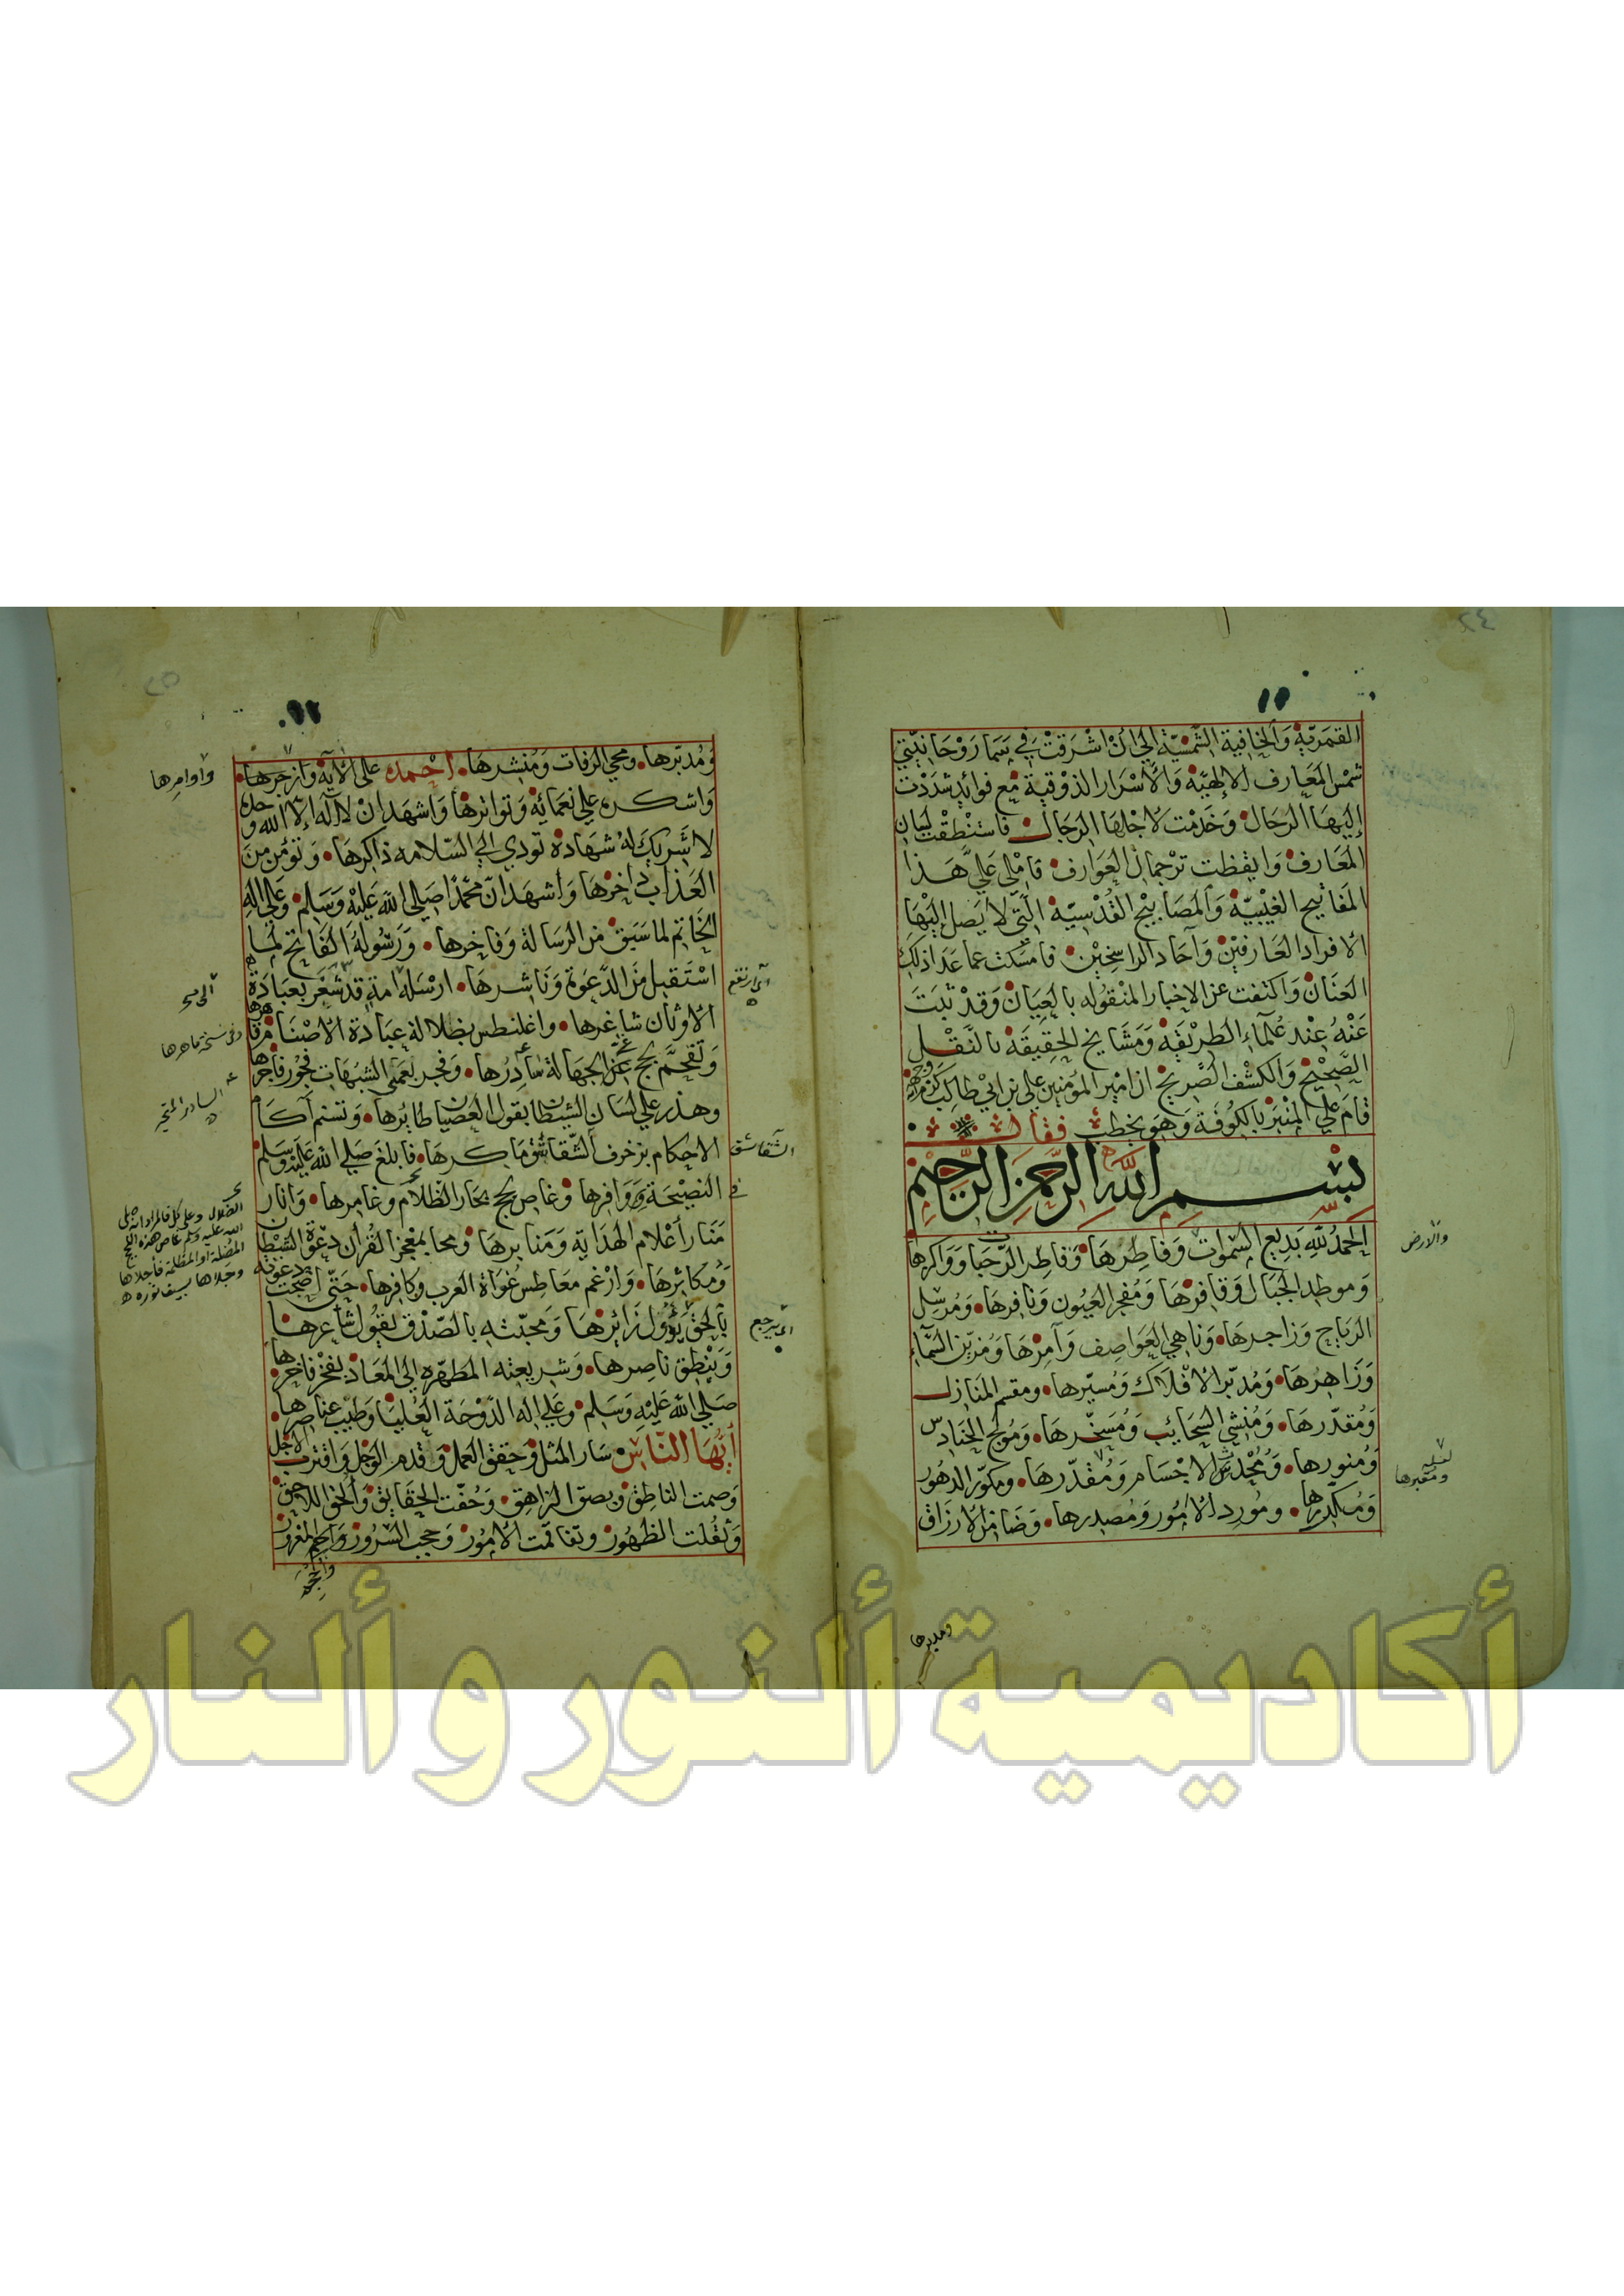 القمريّة والخافية الشمسيّة إلى أن أشرقت في سما روحانيتي
شمس المعارف الالهيّة والأسرار الذوقية مع فوائد شددت
إليها الرحال وخدمت لاجلها الرجال فاستنطقت لسان
المعارف وايقظت ترجمان العوارف فاملى علي هذا
المفاتيح الغيبيّة والمصابيح القدسيّة التي لا يصل إليها
الا افراد العارفين وآحاد الراسخين فامسكت عما عدا ذلك
العنان واكتفت عن الاخبار المنقوله بالعيان وقد ثبت
عنه عند علماء الطريقة ومشايخ الحقيقة بالنقل
الصحيح والكشف الصريح ان امير المومنين علي بن ابي طالب كرم الله وجهه
قام على المنبر بالكوفة وهو يخطب فقال
بسم الله الرحمن الرحيم
الحمد لله بديع السموات وفاطرها وفاطر الرحبات وواكرها
والارض
وموطد الجبال وقافرها ومفجر العيون ونافرها ومرسل
الرياح وزاجرها وناهي العواصف وآمرها ومزين السمآء
وزاهرها ومدبر الافلاك ومسيرها ومقسم المنازل
ومقدرها ومنشي السحائب ومسخرها ومولج الحنادس
ومنورها ومحدث الاجسام ومقدرها ومكور الدهور
لعله ومقبرها
ومكدرها ومورد الامور ومصدرها وضامن الارزاق
ومدبرها
ومدبرها ومحي الرفات ومنشرها احمده على الآيه وازجرها
واوامرها
واشكره علي نعمائه وتواترها واشهد ان لا اله إلا الله وحده
لا شريك له شهادة تودي إلى السلامه ذاكرها وتؤمن من
العذاب داخرها وأشهد ان محمدا صلى الله عليه وسلم وعلى اله
الخاتم لما سبق من الرسالة وفاخرها ورسوله الفاتح لما
استقبل من الدعوة وناشرها ارسله امة قد شغر بعبادة
الاوثان شاغرها واغلنطس بضلالة عبادة الاصنام
وتقحم لج الجهالة سادرها وفجر بعمي الشبهات فجور فاجرها
السادر المتحير
وهذر علي لسان الشيطان بقول العصيان طائرها وتسنم آكام
الاحكام بزخرف الشقاشق ماكرها فابلغ صلى الله عليه وسلم
الشقاشق
النصيحة ووافرها وغاص لج بحار الظلام وغامرها وانار
منار أعلام الهداية ومنابرها ومحا بمعجز القرآن دعوة الشيطان
الضلال وعلى كل فالمراد انه صلى
الله عليه وسلم غاص هذه اللجج
المضلة او المظلمة فأجلاها
وجلاها بسيف نوره
ومكاثرها وارغم معاطس غواة العرب وكافرها حتى اضحت دعوته
بالحق يؤول زائرها ومحبته بالصدق لقبول شاعرها
اي يرجع
وينطق ناصرها وشريعته المطهره إلى المعاد لفخر فاخرها
صلى الله عليه وسلم وعلى اله الدوحة العليا وطيب عناصرها
أيها الناس سار المثل وحقق العمل وقدم الوجل واقترب الاجل
وصمت الناطق وبصق الزاهق وحقت الحقايق والحق اللاحق
وثقلت الظهور وتفاقمت الامور وحجب السرور واحجم المغرور
أكاديمية ألنور و ألنار